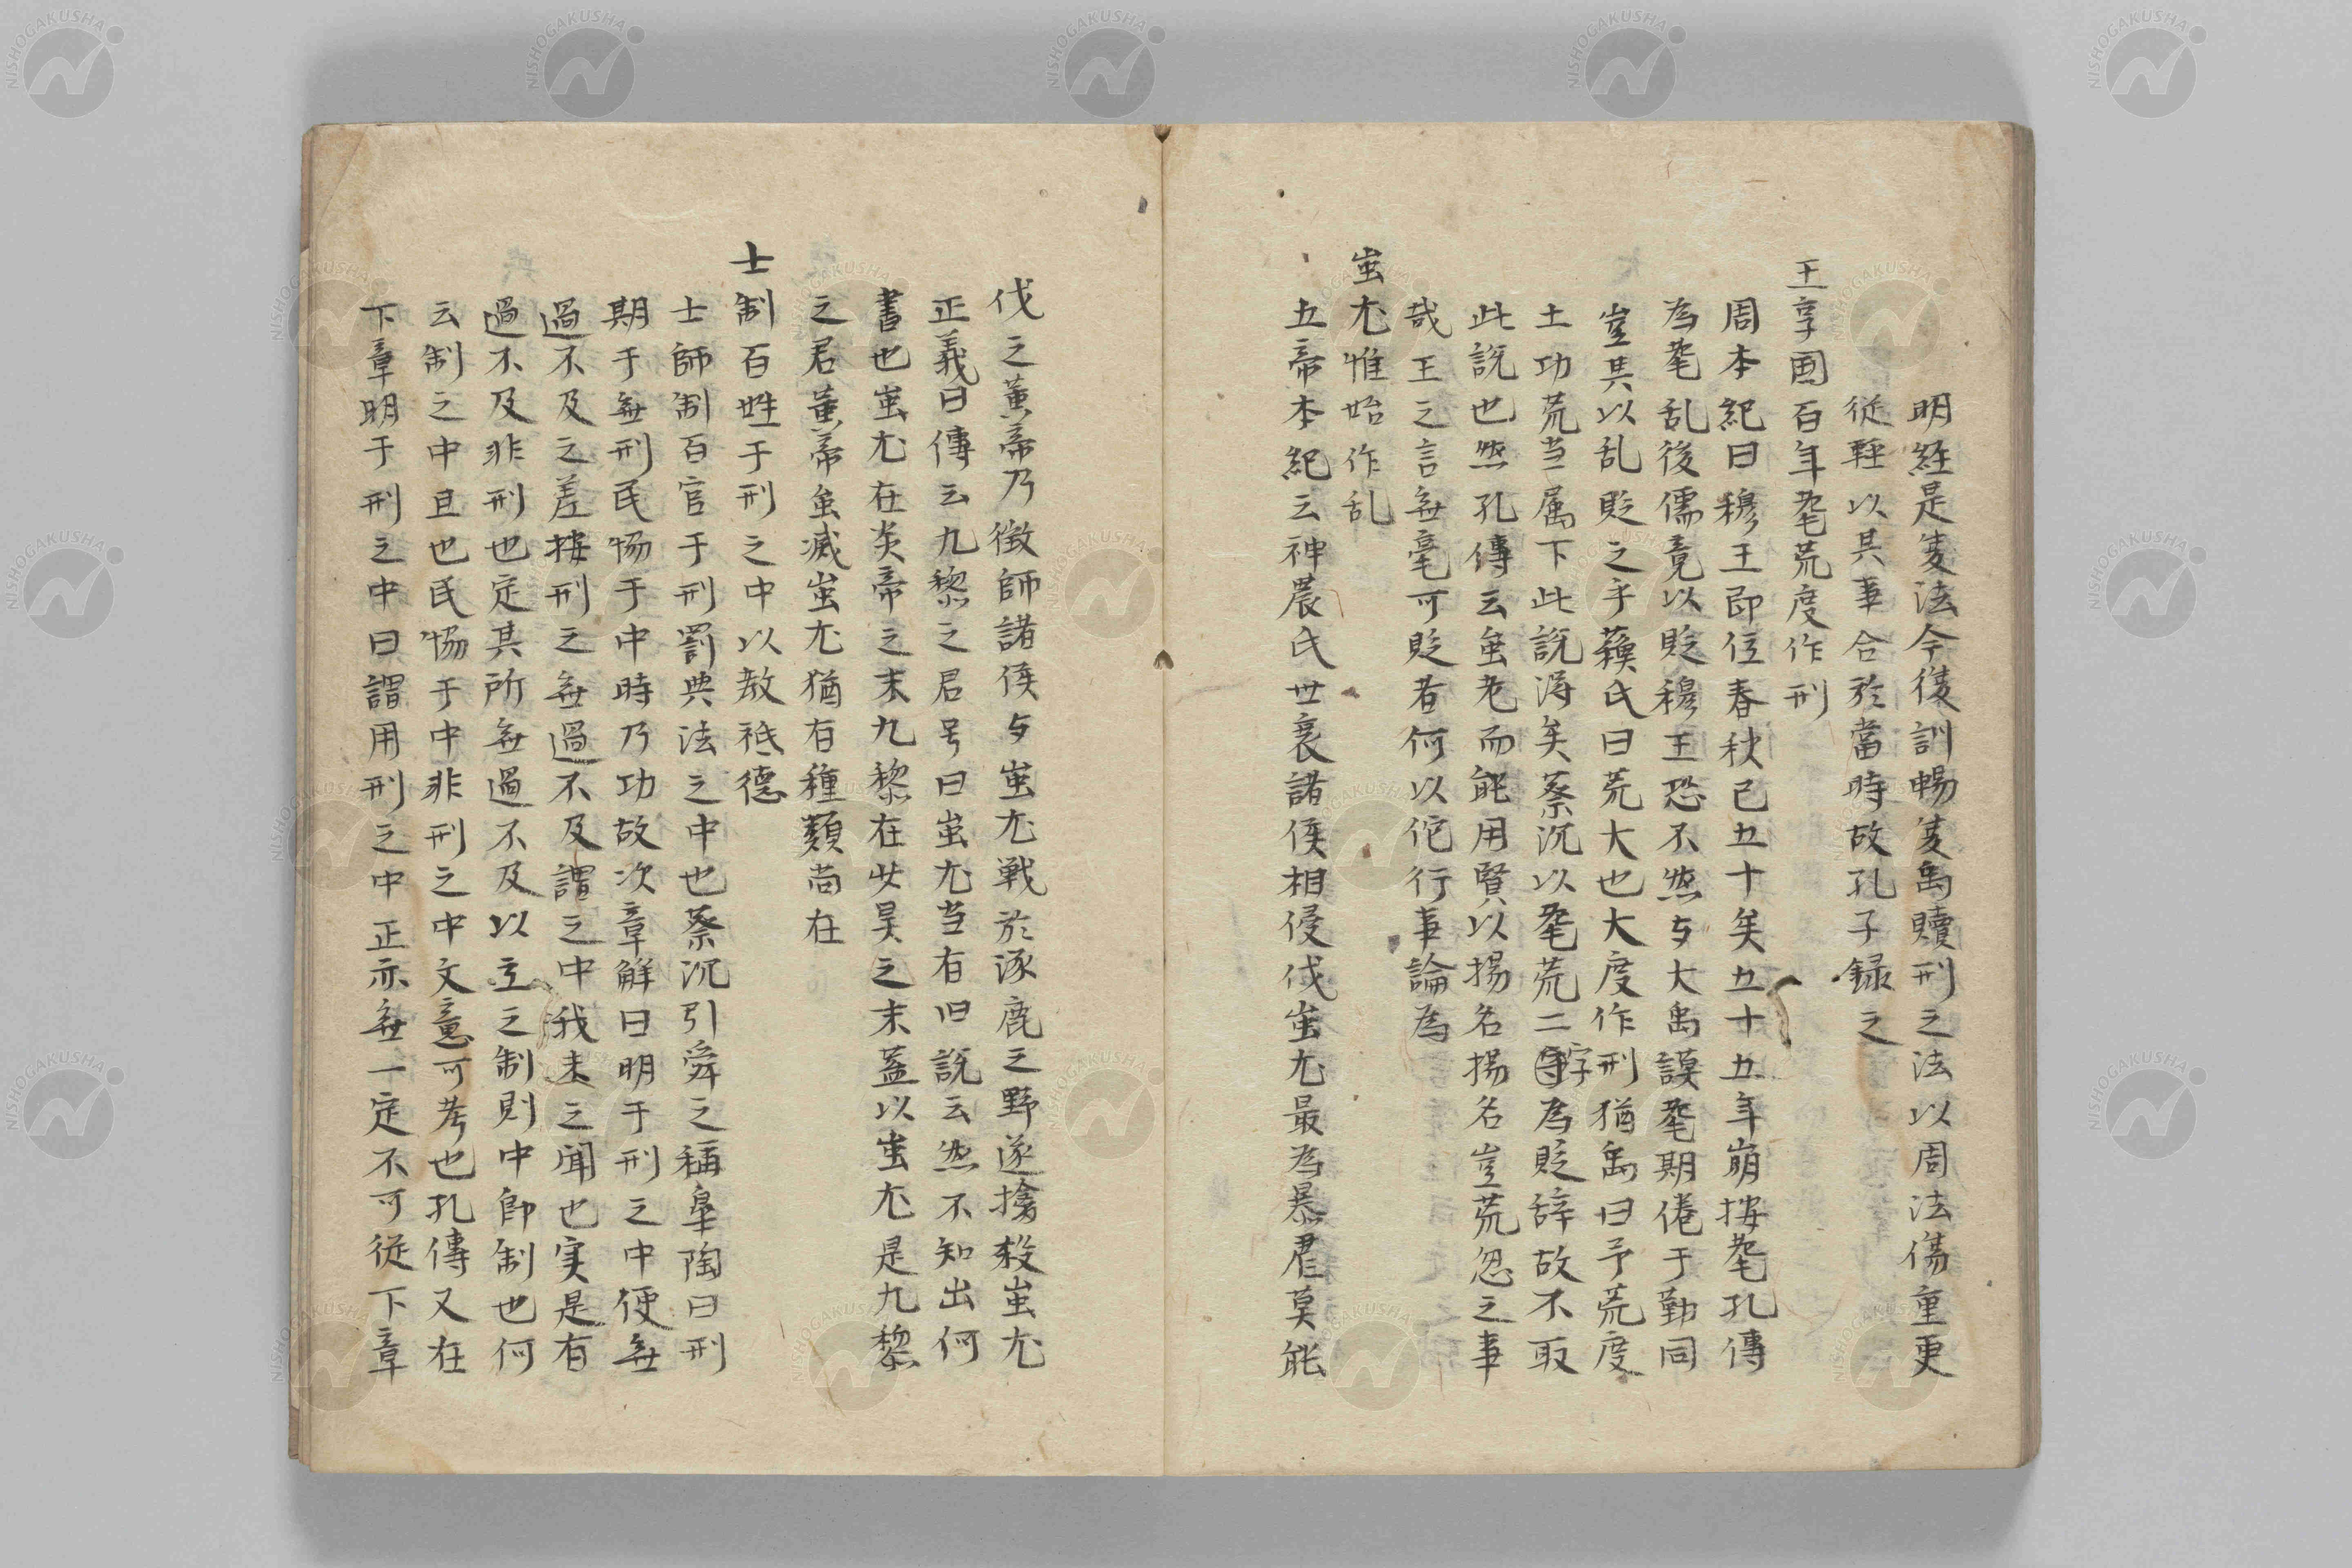 明経是夏法今復訓暢夏禹贖刑之法以周法傷重更
従軽以其事合於當時故孔子録之
王享国百年耄荒度作刑
周本紀曰穆王即位春秋已五十矣五十五年崩按耄孔傳
為耄乱後儒竟以貶穆王恐不然与大禹謨耄期倦于勤同
豈其以乱貶之乎蘓氏曰荒大也大度作刑猶禹曰予荒度
土功荒当属下此説得矣蔡沉以耄荒二字為貶辞故不取
此説也然孔傳云虽老而能用賢以揚名揚名豈荒忽之事
哉王之言無毫可貶者何以佗行事論為
蚩尤惟始作乱
五帝本紀云神農氏世衰諸侯相侵伐蚩尤最為暴君莫能
伐之黄帝乃徴師諸侯与蚩尤戦於涿鹿之野遂擒殺蚩尤
正義曰傳云九黎之君号曰蚩尤当有旧説云然不知出何
書也蚩尤在炎帝之末九黎在少昊之末蓋以蚩尤是九黎
之君黄帝虽滅蚩尤猶有種類尚在
士制百姓于刑之中以敎祗德
士師制百官于刑罰典法之中也蔡沉引舜之稱皐陶曰刑
期于無刑民恊于中時乃功故次章解曰明于刑之中便無
過不及之差按刑之無過不及謂之中我未之聞也実是有
過不及非刑也定其所無過不及以立之制則中即制也何
云制之中且也民恊于中非刑之中文意可考也孔傳又在
下章明于刑之中曰謂用刑之中正亦無一定不可従下章